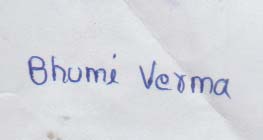 Bhumi Verma